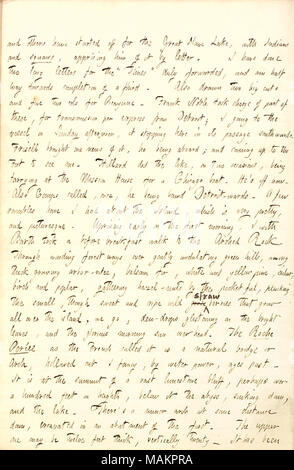 and thence have started up for the Great Slave Lake, with Indians
and squaws, apprising him of it by letter. I have done
two long letters for the "Times" duly forwarded, and am half
way towards completion of a third. Also drawn two big cuts
and five two ols for Anonyms. Frank Noble took charge of part of
these, for transmission per express from Detroit; I going to the
vessel on Sunday afternoon, it stopping here in its passage southwards.
brought me news of it, he being aboard; and coming up to the
Fort to see me. Hillard led the lake, on two occasions, being
tarrying at the Mission House for a Chicago boat. He's off now.
Also called, , he being bound Detroit-wards. A few
rambles have I had about the island, which is very pretty
and picturesque. Uprising early on the first morning, I with
Barth took a before breakfast walk to the Arched Rock
Through winding forest ways over gently undulating green hills, among
thick growing arbor-vitae, balsam fir, white and yellow pine, alder,
birch and poplar, gathering hazel-nuts by the pocket-full, picking
the small, tough sweet and ripe wild straw berries that grow
all over the island, we go, dew-drops glistening on the bright
leaves, and the glorious morning sun over head. The Roche
Percée as the French called it is a natural bridge or
Arch, hollowed out I fancy, by water power, ages past.
It is at the summit of a vast limestone bluff, perhaps over
a hundred feet in height, below it the abyss, sinking down,
and the lake. There's a minor arch at some distance
down, excavated in an abutment of the first. The upper
one may be twelve feet thick, vertically twenty. It has been
alamy
Image ID: MAKPRA
www.alamy.com